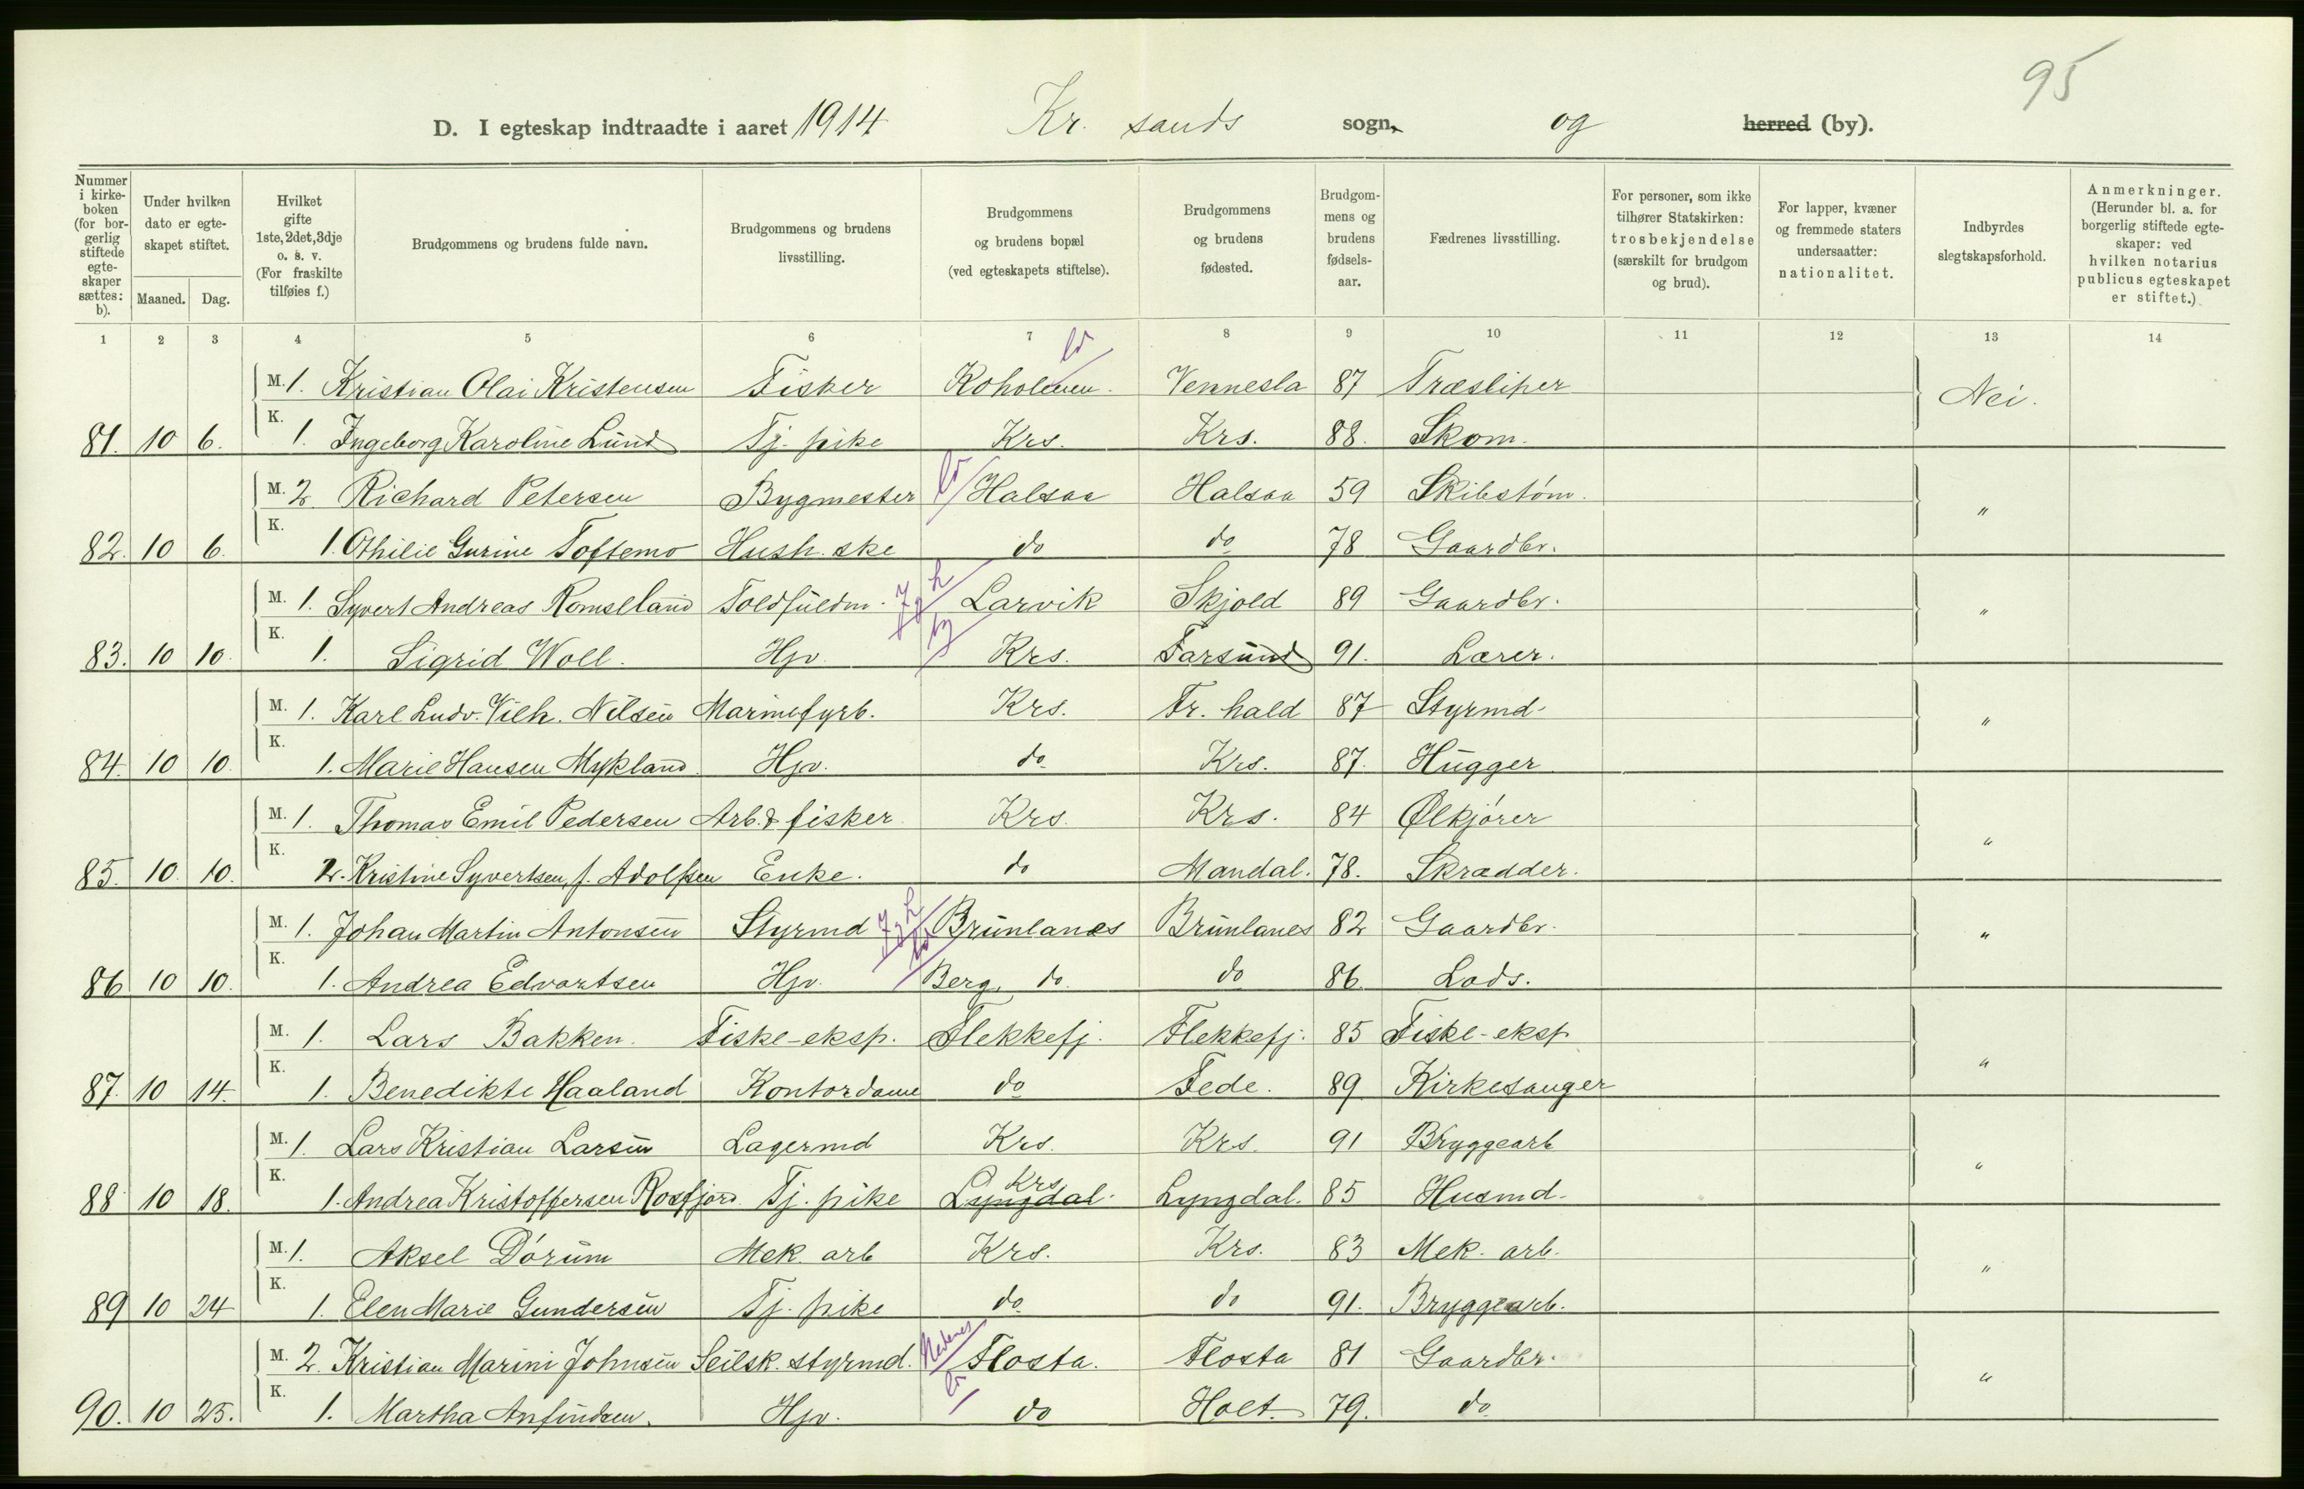 95
D. I egteskap indtraadte i aaret 1914 Kr. sands sogn, og herred (by).
Nummer i kirkeboken (for borgerlig stiftede egteskaper sættes: b).
Under hvilken dato er egteskapet stiftet.
Maaned. Dag.
Hvilket gifte 1ste, 2det, 3dje o. s. v. (For fraskilte tilføies f.)
Brudgommens og brudens fulde navn.
Brudgommens og brudens livsstilling.
Brudgommens og brudens bopæl (ved egteskapets stiftelse).
Brudgommens og brudens fødested.
Brudgommens og brudens fødselsaar.
Fædrenes livsstilling.
For personer, som ikke tilhører Statskirken: trosbekjendelse (særskilt for brudgom og brud).
For lapper, kvæner og fremmede staters undersaatter: nationalitet.
Indbyrdes slegtskapsforhold.
Anmerkninger. (Herunder bl. a. for borgerlig stiftede egteskaper: ved hvilken notarius publicus egteskapet er stiftet.)
1 2 3 4 5 6 7 8 9 10 11 12 13 14
M. 1. Kristian Olai Kristensen Fisker Koholmen. Vennesla 87 Træsliper Nei.
81. 10 6. K. 1. Ingeborg Karoline Lund Tj. pike Krs. Krs. 88. Skom.
M. 2. Richard Petersen Bygmester Halsaa Halsaa 59 Skibstøm. "
82. 10 6. K. 1. Othilie Gurine Toftemo Hush. ske do do 78 Gaardbr.
M. 1. Syvert Andreas Romseland Toldfuldm. Larvik Skjold 89 Gaardbr. "
83. 10 10. K. 1. Sigrid Woll. Hjv. Krs. Farsund 91. Lærer.
M. 1. Karl Ludv. Vilh. Nilsen Marinefyrb. Krs. Fr. hald 87 Styrmd. "
84. 10 10. K. 1. Marie Hansen Mykland. Hjv. do Krs. 87. Hugger
M. 1. Thomas Emil Pedersen Arb. & fisker Krs. Krs. 84 Ølkjører "
85. 10. 10. K. 2. Kristine Syvertsen, f. Adolfsen Enke. do Mandal. 78. Skrædder.
M. 1. Johan Martin Antonsen Styrmd Brunlanes Brunlanes 82 Gaardbr. "
86 10 10. K. 1. Andrea Edvartsen Hjv. Berg, do. do 86 Lods.
M. 1. Lars Bakken. Fiske-eksp. Flekkefj. Flekkefj. 85 Fiske-eksp "
87. 10 14. K. 1. Benedikte Haaland Kontordame do Fede. 89 Kirkesanger
M. 1. Lars Kristian Larsen Lagermd Krs. Krs. 91 Bryggearb "
88 10 18. K. 1. Andrea Kristoffersen Rosfjord Tj. pike Lyngdal. Krs Lyngdal. 85 Husmd.
M. 1. Aksel Dørum Mek. arb Krs. Krs. 83 Mek. arb. "
89 10 24 K. 1. Elen Marie Gundersen Tj. pike do do 91. Bryggearb.
M. 2. Kristian Marini Johnsen Seilsk. styrmd. Nedenes Flosta. Flosta 81 Gaardbr. "
90. 10 25. K. 1. Martha Anfindsen. Hjv. do Holt. 79. do